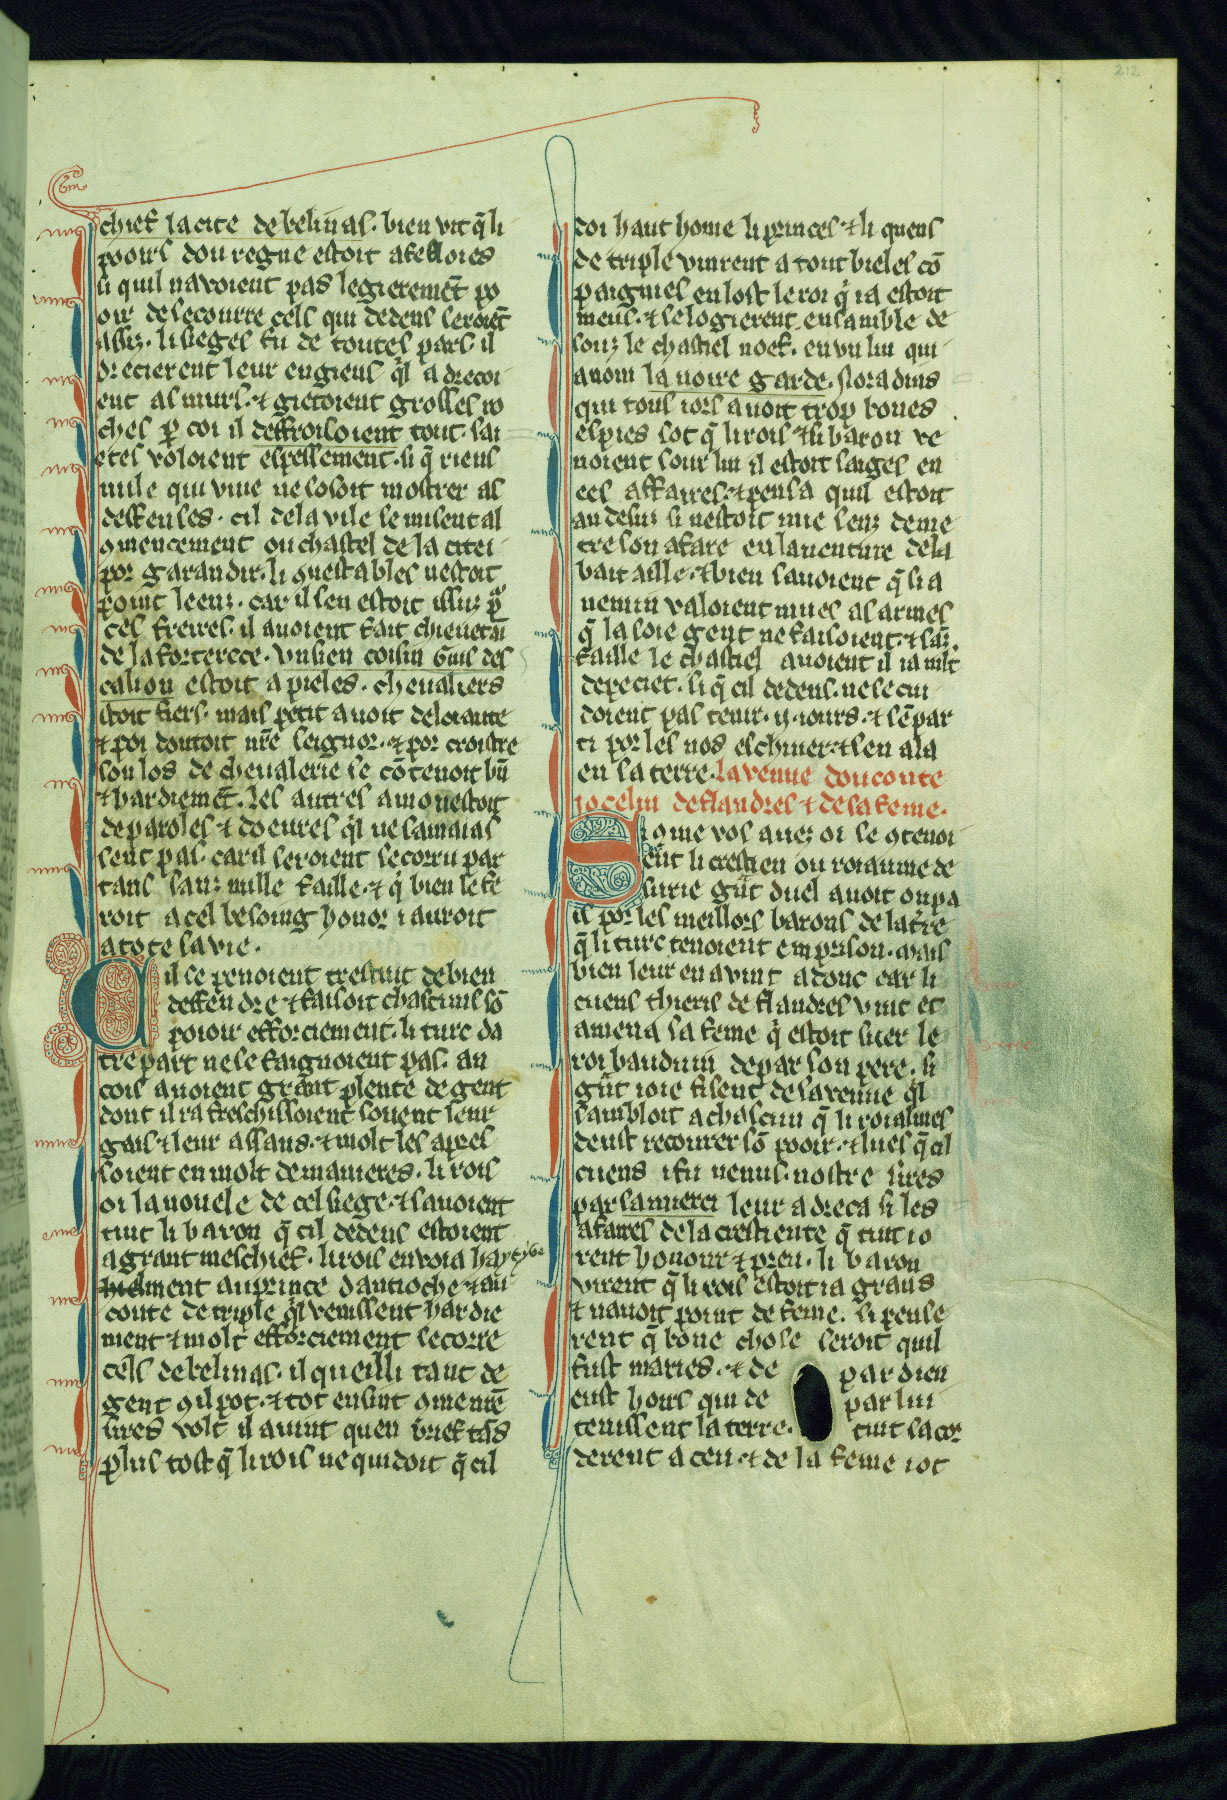 212
chief la cite de belinas. bien vit q̃ li
pooirs dou regne estoit afebloies
si quil navoient pas legierem̃t po
oir de secourre cels qui dedens seroiẽt
assiz. li sieges fu de toutes pars il
drecierent leur engiens q̃l a drecoi
ent as murs. ⁊ gietoient grosses ro
ches p̱ coi il deffroissoient tout. sai
etes voloient espessement. si q̃ riens
nule qui vive ne sosoit mostrer as
deffenses. cil de la vile se misent al
ꝯmencement ou chastel de la citei
por garandir. li ꝯnestables nestoit
point leenz. car il sen estoit issuz p̱
ces freires. il avoient fait chievetaĩ
de la forterece. vn sien coisin Guis des
calion estoit apieles. chevaliers
estoit fiers. mais petit avoit de loiaute
⁊ poi doutoit nr̃e seignor. ⁊ por croistre
son los de chevalerie se cõtenoit bñ
⁊ hardiemẽt. les autres amonestoit
de paroles ⁊ doeures q̃l ne samaias
sent pas. car il seroient secorru par
tans sanz nulle faille. ⁊ q̃ bien se fe
roit a cel besoing honor i auroit
a tote sa vie.
Cil se penoient trestuit de bien
deffendre ⁊ faisoit chascuns sõ
pooir efforciement. li turc da
tre part ne se faignoient pas. an
cois avoient grant plente de gent
dont il rafreschissoient sovent leur
gais ⁊ leur assaus. ⁊ molt les apres
soient en molt de manieres. li rois
oi la nouele de cel siege. ⁊ savoient
tuit li baron q̃ cil dedens estoient
a grant meschief. li rois envoia hay
ment au prince dantioche ⁊ au
conte de triple q̃l venissent hardie
ment ⁊ molt efforciement secorre
cels de belinas. il queilli tant de
gent qil pot. ⁊ tot ensint ꝯme nr̃e
sires volt il avint quen brief tãs
plus tost q̃ li rois ne quidoit q̃ cil
coi haut home li princes ⁊ li quens
de triple vinrent a tout bieles cõ
paignies en lost le roi q̃ ia estoit
meus. ⁊ se logierent ensamble de
souz le chastiel noef. en vn liu qui
a nom la noire garde. noradins
qui tous iors avoit trop bones
espies sot q̃ li rois ⁊ si baron ve
noient sour lui il estoit saiges en
ces affaires. ⁊ pensa quil estoit
au desuz si nestoit mie senz de me
tre son afare en laventure de la
bataille. ⁊ bien savoient q̃ si a
nemin valoient mies as armes
q̃ la soie gent ne faisoient. ⁊ sãz
faille le chastiel avoient il ia mlt
depeciet. si q̃ cil dedens. ne se cui
doient pas tenir. ij. iours. ⁊ sẽ par
ti por les nos eschiver. ⁊ sen ala
en sa terre. la venue dou conte
iocelin de flandres ⁊ de sa feme.
Si ꝯme vos avez oi se ꝯtenoi
ent li crestien ou roiaume de
surie gñt duel avoit on pa
is por les meillors barons de la tr̃e
q̃ li turc tenoient em prison. mais
bien leur en avint adonc car li
cuens thieris de flandres vint et
amena sa feme q̃ estoit suer le
roi bauduin de par son pere. si
gñt ioie fisent de sa venue q̃l
sambloit a chascun q̃ li roialmes
deust recourer sõ pooir. ⁊ lues q̃ cil
cuens i fu venus. nostre sires
par sa merci leur adreca si les
afaires de la crestiente q̃ tuit io
rent honour ⁊ preu. li baron
virent q̃ li rois estoit ia grans
⁊ navoit point de feme. si pense
rent q̃ bone chose seroit quil
fust maries. ⁊ de par dieu
eust hoirs qui de par lui
tenissent la terre. tuit sacor
derent a ceu. ⁊ de la feme iot